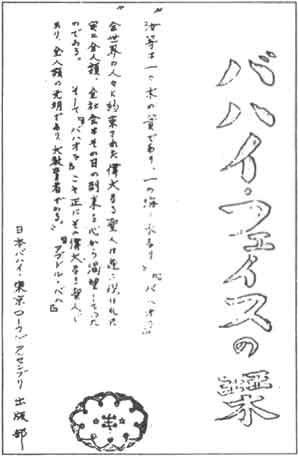 バハイ・フェイスの栞
"汝等は一つ木の實であり、一つ海の
全世界の人々に約束された偉大なる聖人は遂に現はれた
実に全人類、全社会はその日の到来を心から渇望してゐた
のである。そして『バハオラ』こそ正にその偉大なる聖人で
あり、全人類の光明であり大教育者である。" 『アブドル・バハ』
日本バハイ・東京ローカルアセンブリ 出版部